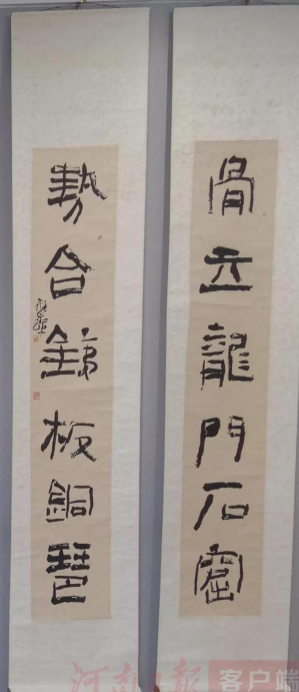 骨立龍門石窟
勢合銕板銅琶
河南日报客户端